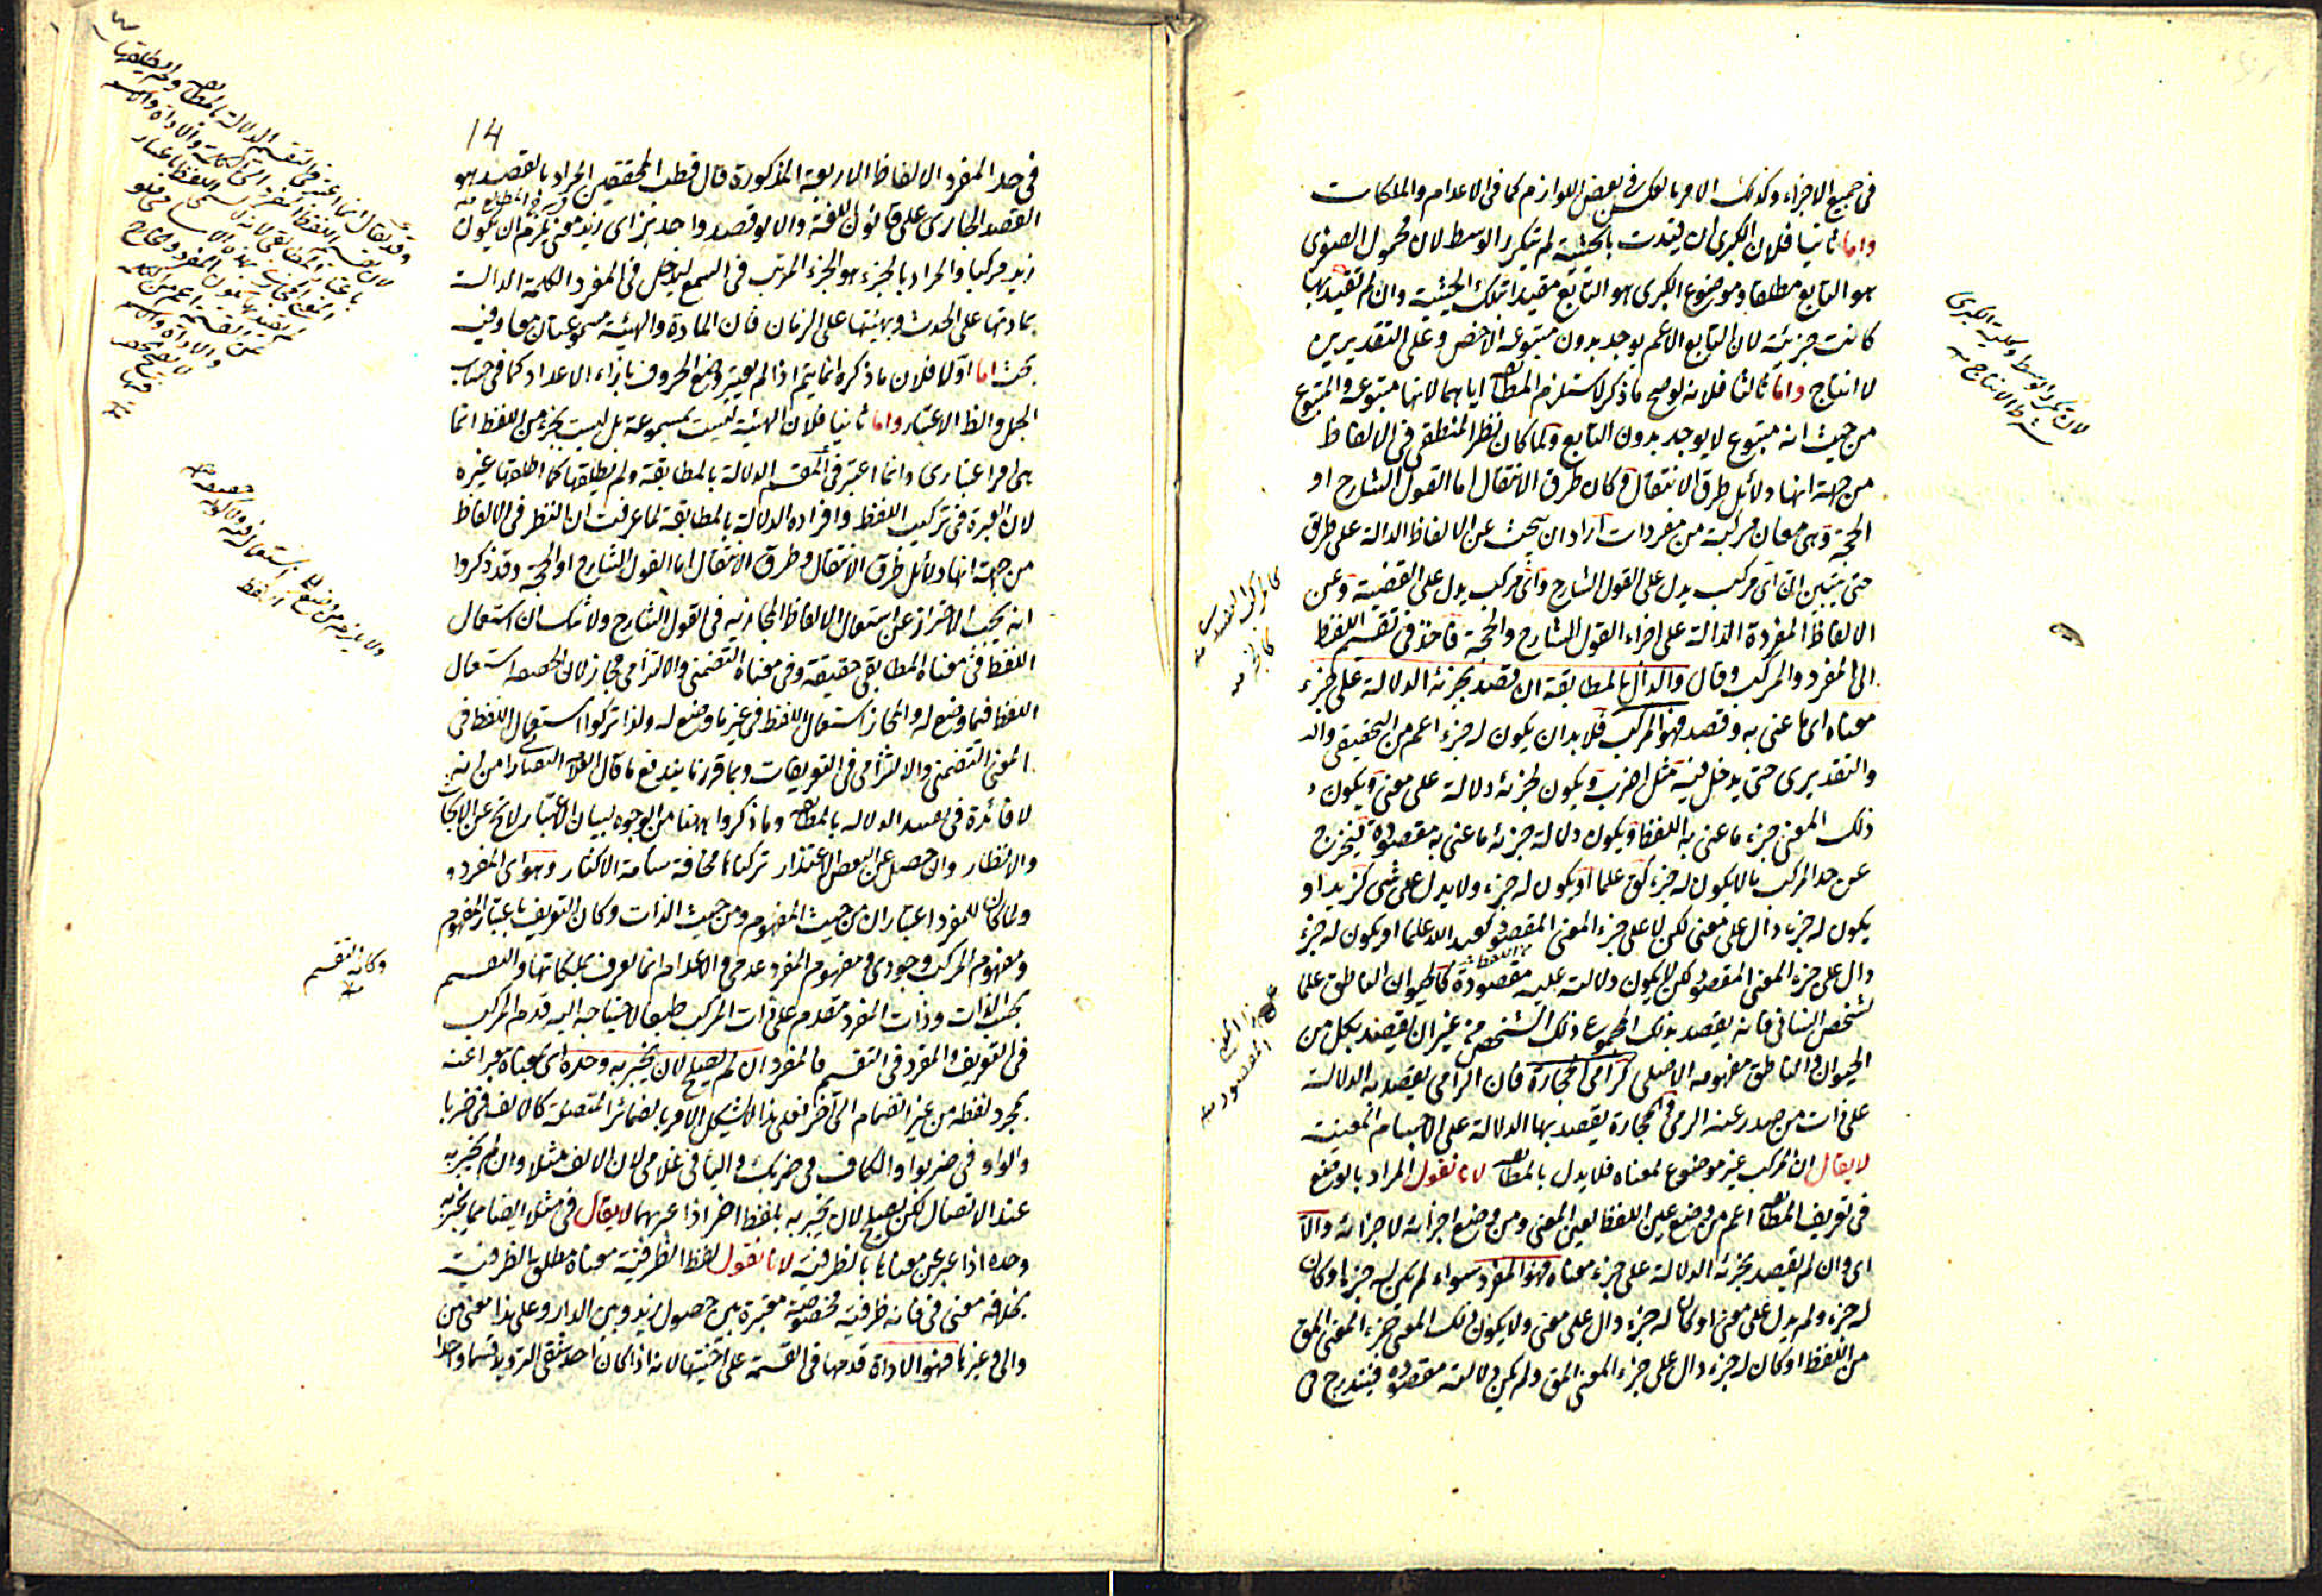 في جميع الاجزاء وكذلك الامر بالعكس في بعض اللوازم كما في الاعدام والملكات
واما ثانيا فلان الكبرى ان قيدت بالحيثية لم يتكرر الوسط لان محمول الصغرى
هو التابع مطلقا وموضوع الكبرى هو التابع مقيدا بتلك الحيثية وان لم تقيد بها
كانت جزئية لان التابع الاعم يوجد بدون متبوعه الاخص وعلى التقديرين
لا انتاج واما ثالثا فلانه لو صح ما ذكر لاستلزم المطابقة اياهما لانها متبوعة والمتبوع
من حيث انه متبوع لا يوجد بدون التابع ولما كان نظر المنطقي في الالفاظ
من جهة انها دلائل طرق الانتقال وكان طرق الانتقال اما القول الشارح او
الحجة وهي معان مركبة من مفردات اراد ان يبحث عن الالفاظ الدالة على طرق
حتى يتبين ان اى مركب يدل على القول الشارح واى مركب يدل على القضية وعن
الالفاظ المفردة الدالة على اجزاء القول الشارح والحجة فاخذ في تقسيم اللفظ
الى المفرد والمركب وقال والدال بالمطابقة ان قصد بجزئه الدلالة على جزء
معناه اى ما عنى به وقصد فهو المركب فلا بد ان يكون له جزء اعم من التحقيقي
والتقديرى حتى يدخل فيه مثل اضرب ويكون لجزئه دلالة على معنى ويكون
ذلك المعنى جزء ما عنى به اللفظ ويكون دلالة جزئه ما عنى به مقصودة فيخرج
عن حد المركب ما لا يكون له جزء كق علما او يكون له جزء ولا يدل على شئ كزيد او
يكون له جزء دال على معنى لكن لا على جزء المعنى المقصود كعبد الله علما او يكون له جزء
دال على جزء المعنى المقصود لكن لا يكون دلالته عليه مقصودة كالحيوان الناطق علما
لشخص انسانى فانه يقصد بذلك المجموع ذلك الشخص من غير ان يقصد بكل من
الحيوان والناطق مفهومه الاصلى كرامى الحجارة فان الرامى يقصد به الدلالة
على ذات من صدر عنه الرمى والحجارة يقصد بها الدلالة على الاجسام المعينة
لا يقال ان المركب غير موضوع لمعناه فلا يدل بالمطابقة لانا نقول المراد بالوضع
في تعريف المطابقة اعم من وضع عين اللفظ لعين المعنى ومن وضع اجزائه لاجزائه والا
اى وان لم يقصد بجزئه الدلالة على جزء معناه فهو المفرد سواء لم يكن له جزء او كان
له جزء ولم يدل على معنى او كان له جزء دال على معنى ولا يكون ذلك المعنى جزء المعنى المق
من اللفظ او كان له جزء دال على جزء المعنى المق ولم يكن دلالته مقصودة فيندرج في
لان تكرر الوسط وكلية الكبرى
شرط الانتاج منه
جزء المعنى
المقصود منه
14
في حد المفرد الالفاظ الاربعة المذكورة قال قطب المحققين المراد بالقصد هو
القصد الجارى على قانون اللغة والا لو قصد واحد بزاى زيد معنى يلزم ان يكون
زيد مركبا والمراد بالجزء هو الجزء المرتب في السمع ليدخل في المفرد الكلمة الدالة
بمادتها على الحدث وبهيئتها على الزمان فان المادة والهيئة مسموعتان معا وفيه
بحث اما اولا فلان ما ذكره انما يتم اذا لم يعتبر وضع الحروف بازاء الاعداد كما في حساب
الجمل والظ الاعتبار واما ثانيا فلان الهيئة ليست بمسموعة بل ليست بجزء من اللفظ انما
هى امر اعتبارى وانما اعتبر في المقسم الدلالة بالمطابقة ولم يطلقها كما اطلقها غيره
لان العبرة في تركيب اللفظ وافراده الدلالة بالمطابقة لما عرفت ان النظر في الالفاظ
من جهة انها دلائل طرق الانتقال وطرق الانتقال اما القول الشارح او الحجة وقد ذكروا
انه يجب الاحتراز عن استعمال الالفاظ المجازية في القول الشارح ولا شك ان استعمال
اللفظ في معناه المطابقى حقيقة وفي معناه التضمنى والالتزامى مجاز لان الحقيقة استعمال
اللفظ فيما وضع له والمجاز استعمال اللفظ في غير ما وضع له ولذا تركوا استعمال اللفظ في
المعنى التضمنى والالتزامى في التعريفات وبما قررنا يندفع ما قال العلامة التفتازانى من انه
لا فائدة في تقييد الدلالة بالمطابقة وما ذكروا ههنا من الوجوه لبيان الاعتبار لا تخ عن الابحاث
والانظار وان حصل عن البعض الاعتذار تركناها مخافة سآمة الاكثار وهو اى المفرد
ولما كان للمفرد اعتباران من حيث المفهوم ومن حيث الذات وكان التعريف باعتبار المفهوم
ومفهوم المركب وجودى ومفهوم المفرد عدمى والاعدام انما تعرف بملكاتها والتقسيم
بحسب الذات وذات المفرد متقدم على ذات المركب طبعا لاحتياجه اليه قدم المركب
في التعريف والمفرد في التقسيم فالمفرد ان لم يصلح لان يخبر به وحده اى معناه معبرا عنه
بمجرد لفظه من غير انضمام الى آخر فعلى هذا لا يشكل الامر بالضمائر المتصلة كالالف في ضربا
والواو في ضربوا والكاف في ضربك والياء في غلامى لان الالف مثلا وان لم يخبر به
عند الاتصال لكن يصلح لان يخبر به بلفظ اخر اذا عبر بهما لا يقال في مثلا ايضا مما يخبر به
وحده اذا عبر عن معناها بالظرفية لانا نقول لفظ الظرفية معناه مطلق الظرفية
بخلاف معنى في فانه ظرفية مخصوصة معتبرة بين حصول زيد وبين الدار وعلى هذا معنى من
والى وغيرها فهو الاداة قدمها في القسمة على اختيها لانه اذا كان احد شقى الترديد قسما واحدا
وكان التقسيم